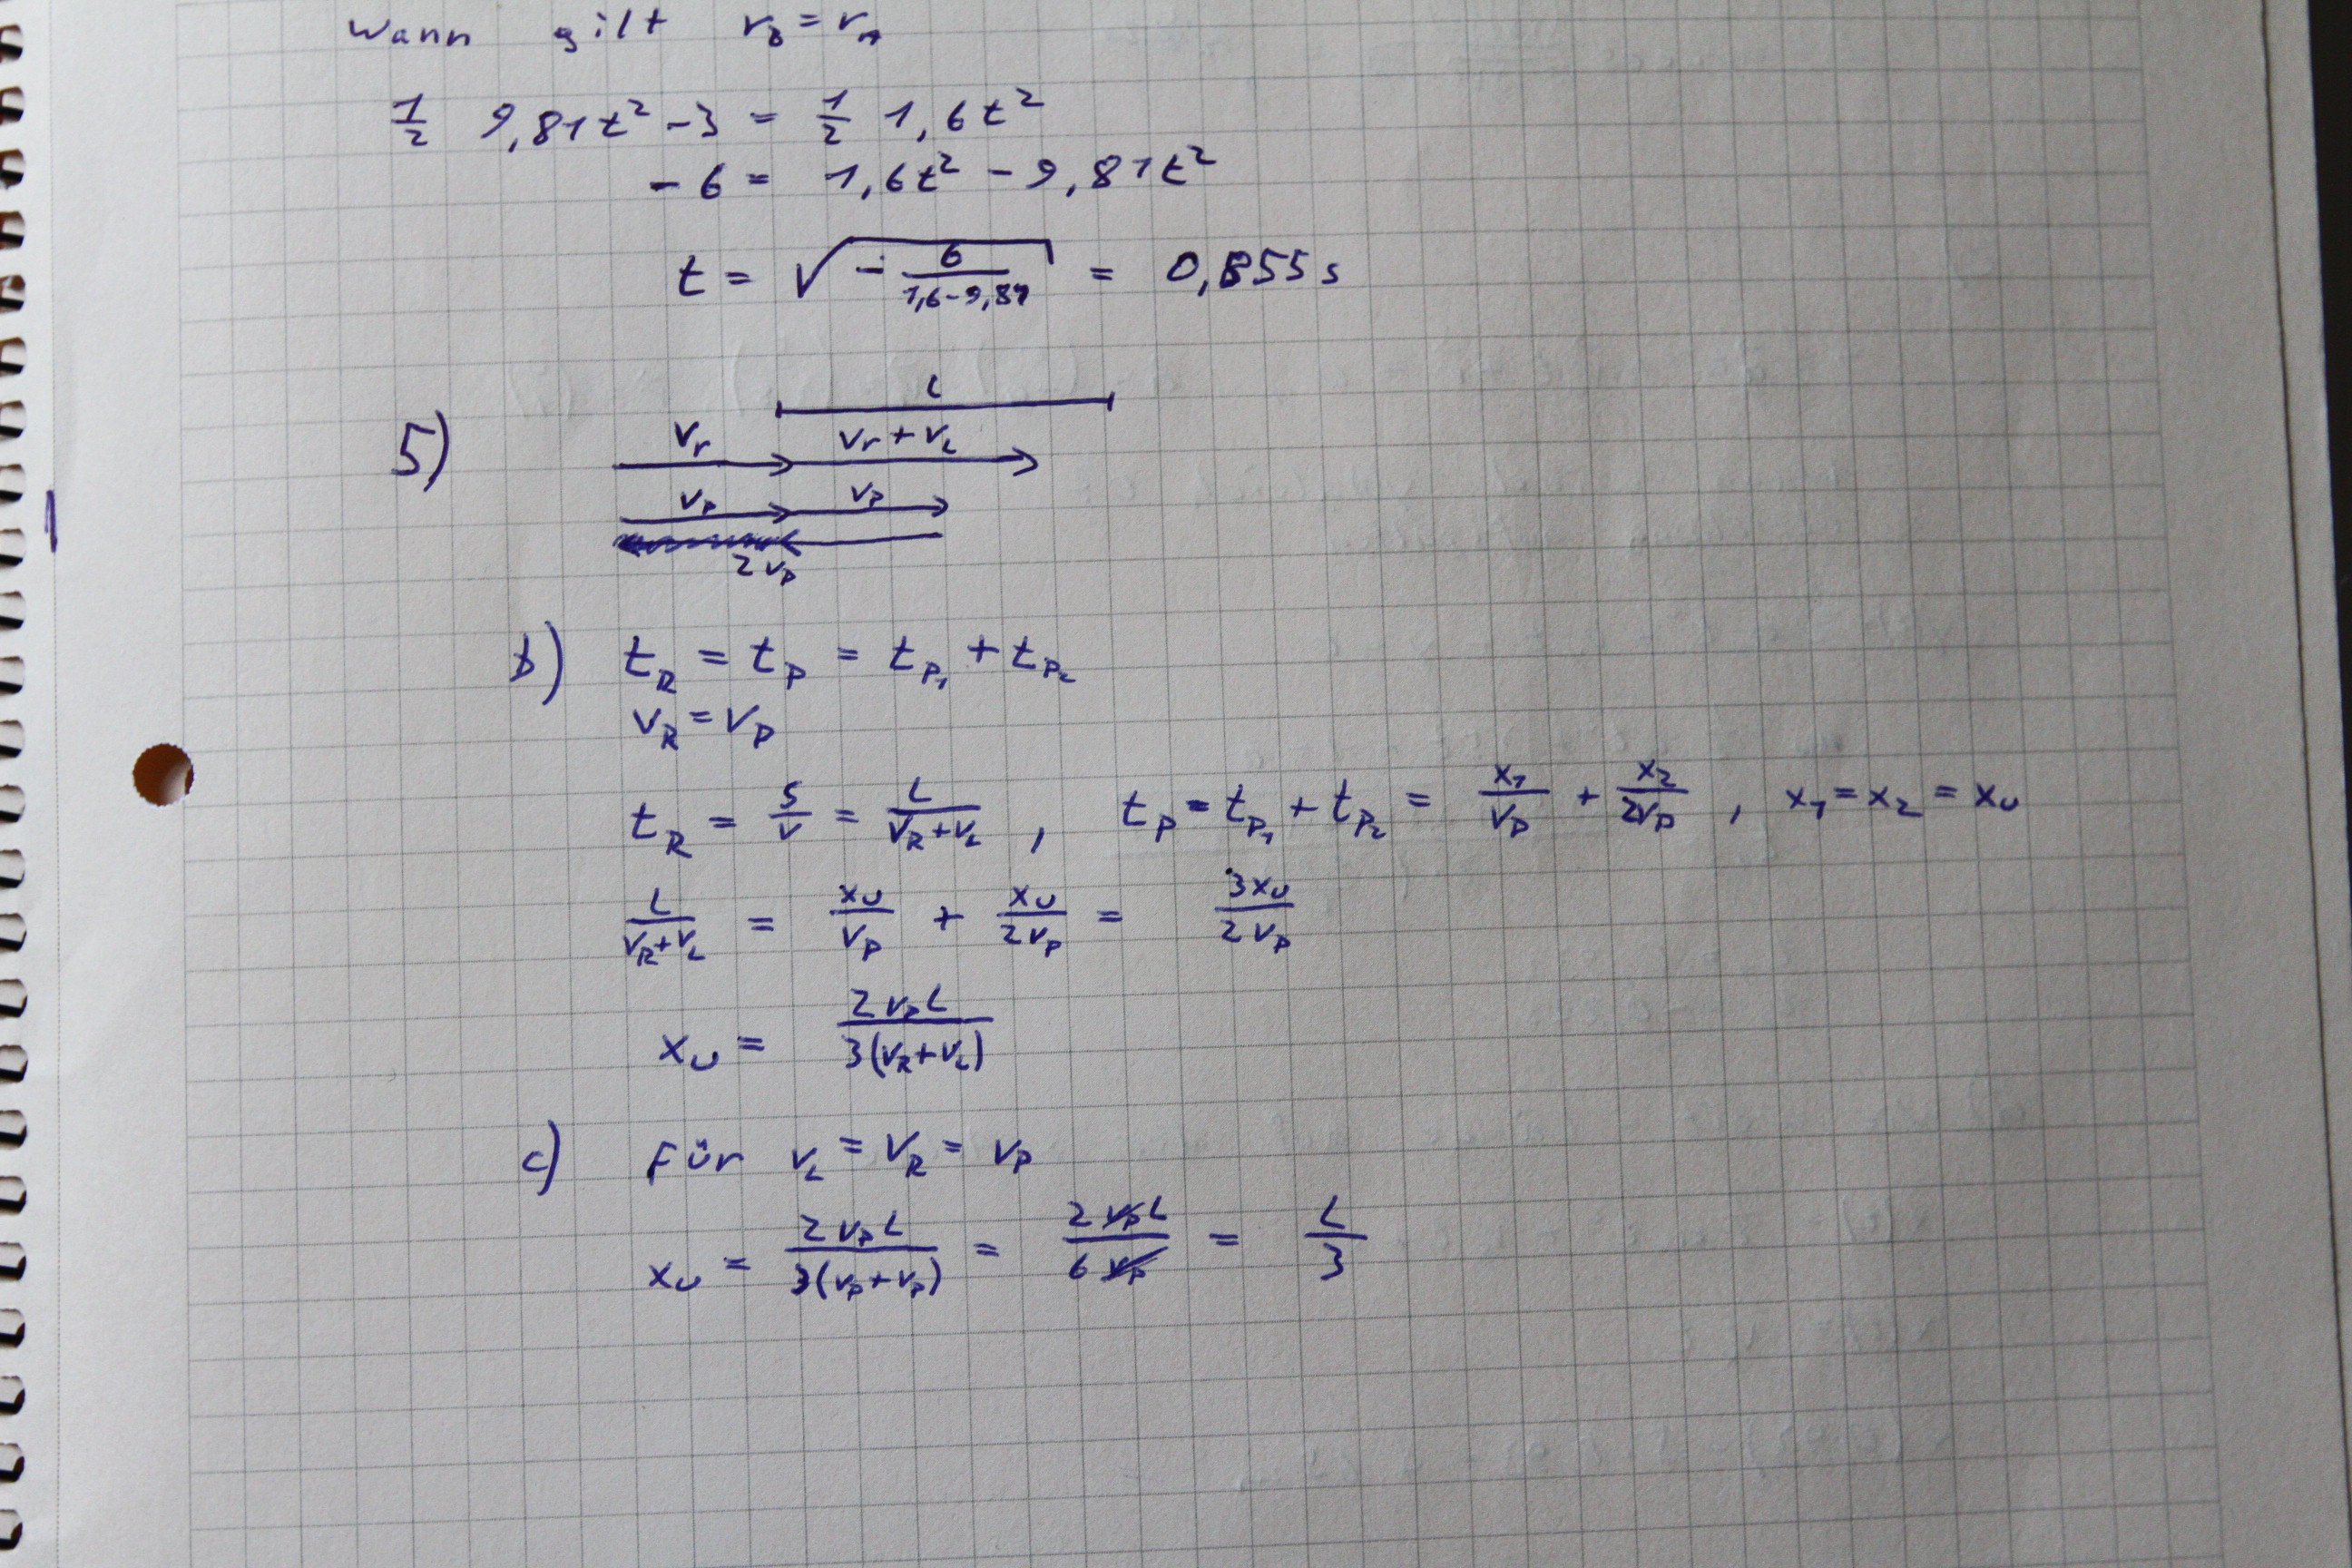 Wann gilt r_B = r_A
1/2 9,81t² - 3 = 1/2 1,6t²
- 6 = 1,6t² - 9,81t²
t = √(- 6/(1,6-9,81)) = 0,855 s
L
5) v_r v_r + v_L
v_P v_P
2 v_P
b) t_R = t_P = t_P1 + t_P2
v_R = v_P
t_R = s/v = L/(v_R+v_L) , t_P = t_P1 + t_P2 = x_1/v_P + x_2/(2v_P) , x_1 = x_2 = x_U
L/(v_R+v_L) = x_U/v_P + x_U/(2v_P) = 3x_U/(2v_P)
x_U = 2v_P L/(3(v_R+v_L))
c) Für v_L = v_R = v_P
x_U = 2v_P L/(3(v_P+v_P)) = 2v_P L/(6v_P) = L/3